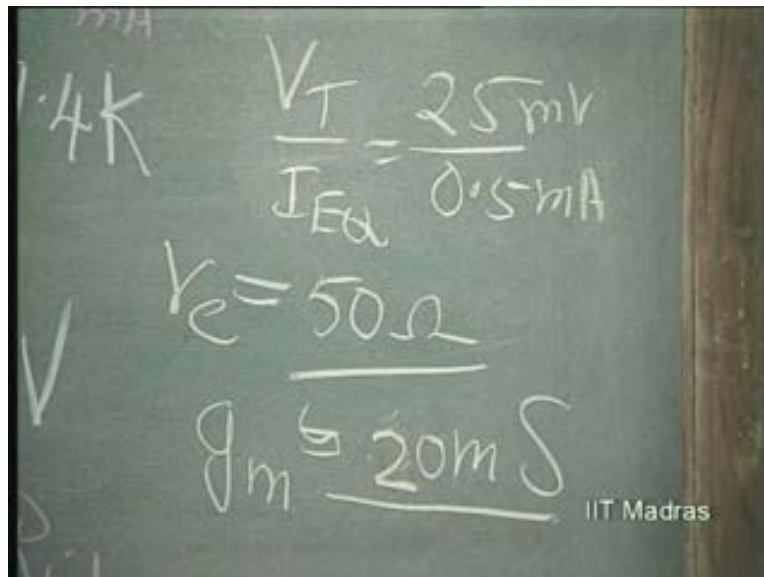 mA
.4K
V_T / I_EQ = 25mV / 0.5mA
r_e = 50Ω
V
g_m ≃ 20mS
IIT Madras